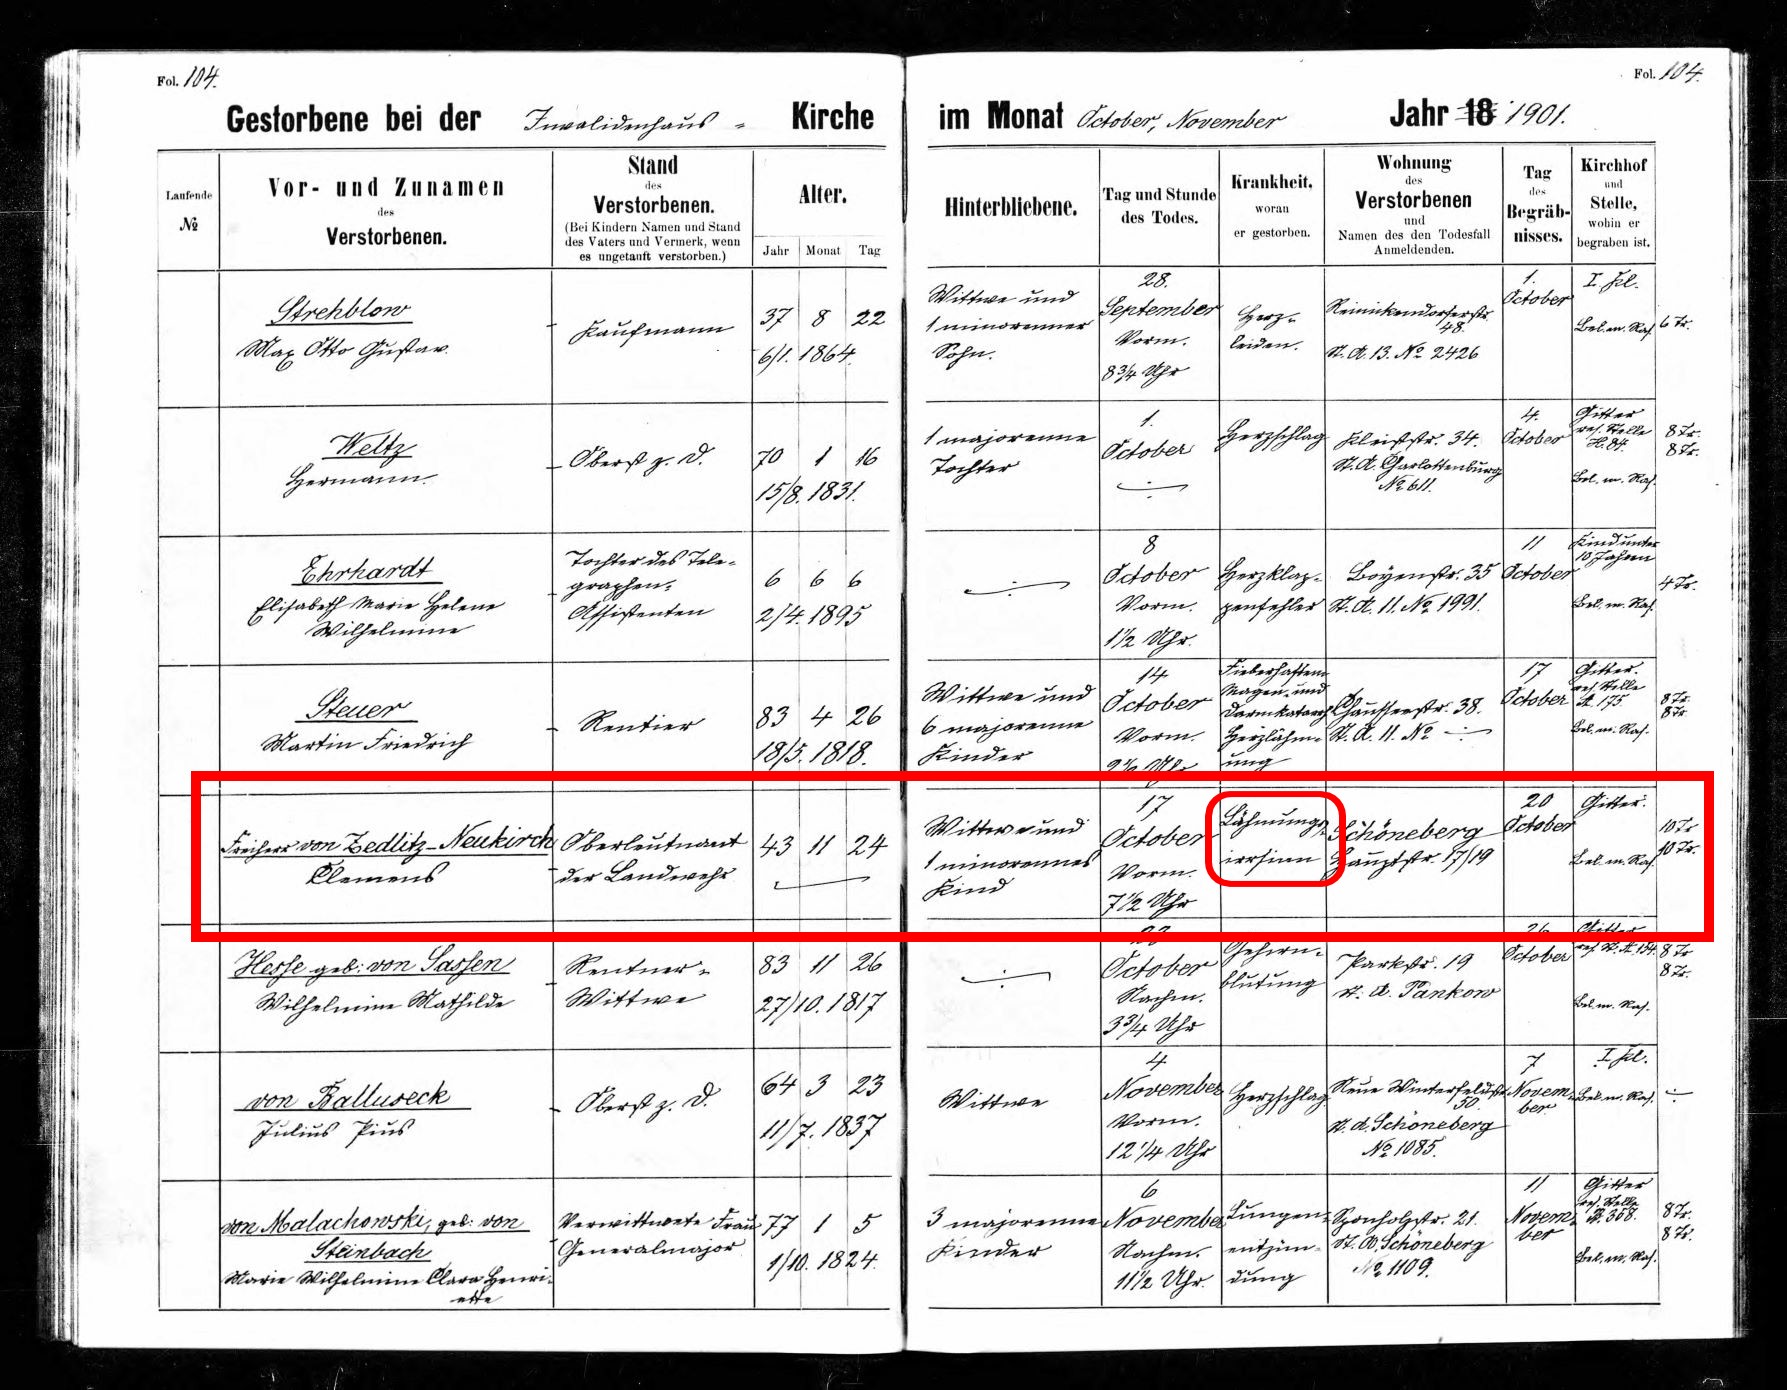 Fol. 104.
Fol. 104.
Gestorbene bei der Invalidenhaus - Kirche im Monat October, November Jahr 18 1901.
Laufende
№
Vor- und Zunamen
des
Verstorbenen.
Stand
des
Verstorbenen.
(Bei Kindern Namen und Stand
des Vaters und Vermerk, wenn
es ungetauft verstorben.)
Alter.
Jahr Monat Tag
Hinterbliebene.
Tag und Stunde
des Todes.
Krankheit,
woran
er gestorben.
Wohnung
des
Verstorbenen
und
Namen des den Todesfall
Anmeldenden.
Tag
des
Begräb-
nisses.
Kirchhof
und
Stelle,
wohin er
begraben ist.
Strehblow
Max Otto Gustav.
Kaufmann
37 8 22
6/1. 1864.
Wittwe und
1 minorenner
Sohn.
28.
September
Vorm.
8 3/4 Uhr
Herz-
leiden.
Reinickendorferstr.
48.
St. A. 13. No 2426
1.
October
I. Kl.
Bel. m. Ras.
6 Tr.
Weltz
Hermann.
Oberst z. D.
70 1 16
15/8. 1831.
1 majorenne
Tochter
1.
October
Herzschlag
Kleiststr. 34.
St. A. Charlottenburg
No 611.
4.
October
Gitter
res. Stelle
H. 84.
Bel. m. Ras.
8 Tr.
8 Tr.
Ehrhardt
Elisabeth Marie Helene
Wilhelmine
Tochter des Tele-
graphen-
Assistenten
6 6 6
2/4. 1895
8
October
Vorm.
1 1/2 Uhr.
Herzklap-
penfehler
Boyenstr. 35
St. A. 11. No 1991.
11
October
Kind unter
10 Jahren
Bel. m. Ras.
4 Tr.
Steuer
Martin Friedrich
Rentier
83 4 26
18/5. 1818.
Wittwe und
6 majorenne
Kinder
14
October
Vorm.
Fieberhaftem
Magen- und
Darmkatarrh
Herzlähm-
ung
Chausseestr. 38.
St. A. 11. No
17
October
Gitter.
res. Stelle
A. 175.
Bel. m. Ras.
8 Tr.
8 Tr
Freiherr von Zedlitz-Neukirch
Clemens
Oberleutnant
der Landwehr
43 11 24
Wittwe und
1 minorennes
Kind
17
October
Vorm.
7 1/2 Uhr
Lähmungs-
irrsinn
Schöneberg
Hauptstr. 17/19
20
October
Gitter.
Bel. m. Ras.
10 Tr
10 Tr.
Hesse geb: von Sassen
Wilhelmine Mathilde
Rentner-
Wittwe
83 11 26
27/10. 1817
October
Nachm.
3 3/4 Uhr
Gehirn-
blutung
Parkstr. 19
St. A. Pankow
26
October
Gitter
res. St. A. 154.
Bel. m. Ras.
8 Tr
8 Tr.
von Balluseck
Julius Pius
Oberst z. D.
64 3 23
11/7. 1837
Wittwe
4
November
Vorm.
12 1/4 Uhr
Herzschlag
Neue Winterfeldtstr.
50.
St. A. Schöneberg
No 1085.
7
Novem-
ber
I. Kl.
Bel. m. Ras.
von Malachowski, geb: von
Steinbach
Marie Wilhelmine Clara Henri-
ette
Verwittwete Frau
Generalmajor
77 1 5
1/10. 1824.
3 majorenne
Kinder
6
November
Nachm.
11 1/2 Uhr.
Lungen-
entzün-
dung
Sponholzstr. 21.
St. A. Schöneberg
No 1109.
11
Novem-
ber
Gitter
res. Stelle
B. 368.
Bel. m. Ras.
8 Tr.
8 Tr.